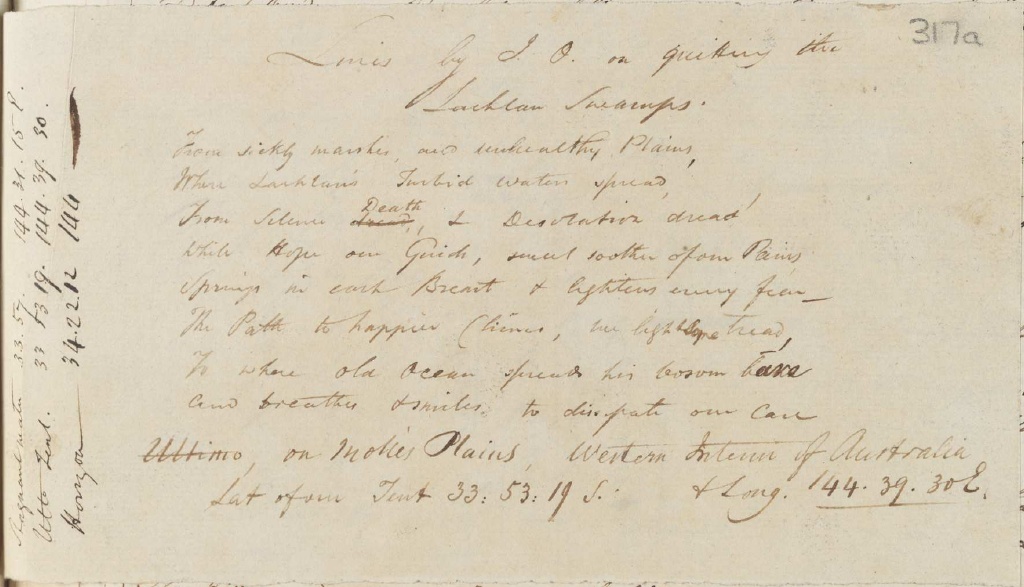 317a
Lines by J. O. on quitting the
Lachlan Swamps.
From sickly marshes, and unhealthy Plains,
Where Lachlan's Turbid waters spread,
Death
From Silence dread, & Desolation dread
While Hope our Guide, sweet soother of our Pains,
Springs in each Breast & lightens every fear
The Path to happier Climes, we tread,
To where old Ocean spreads his bosom bare
and breathes & smiles, to dissipate our Care
Ultimo, on Molle's Plains, Western Interior of Australia
Lat of our Tent 33: 53: 19 S. & Long. 144. 39. 30 E.
Stagnant water 33. 57. 144. 31. 15 E.
Utto Tent. 33 53 19. 144. 39. 30.
34. 22. 12 144